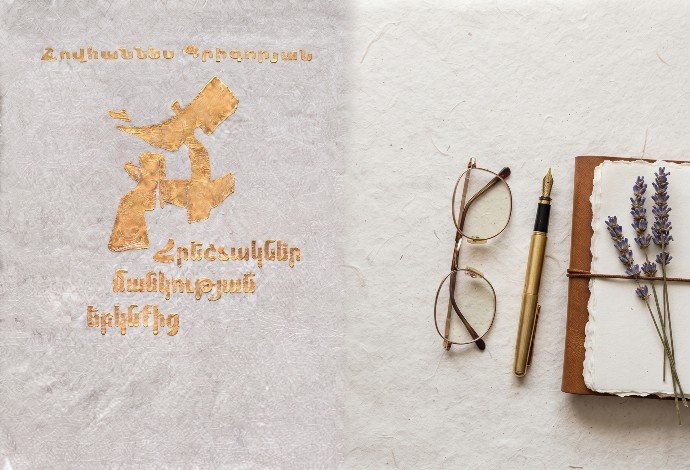 Հովհաննես Գրիգորյան
Հրեշտակներ
մանկության
երկնքից